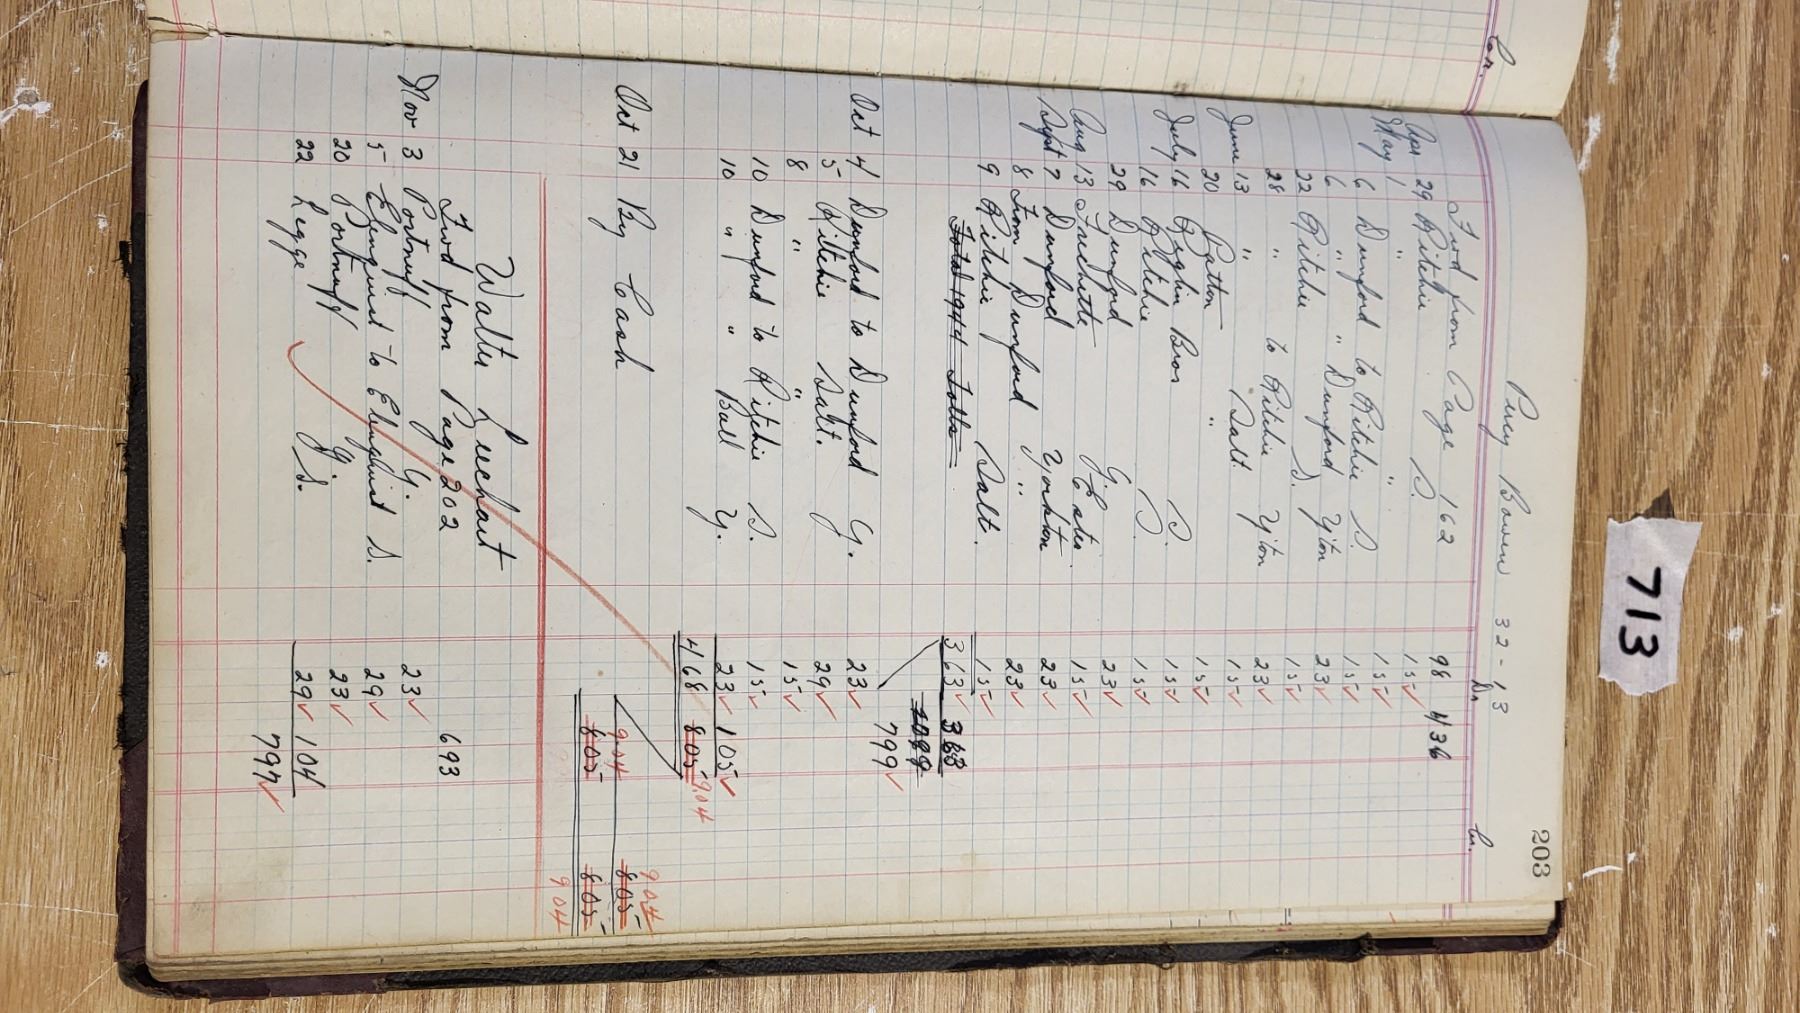 Cr.
203
Percy Bowen 32-13
Dr. Cr.
Fwd from Page 162 98 436
Apr 29 Ritchie S. 15 ✓
May 1 " " 15 ✓
6 Dunford to Ritchie S. 15 ✓
6 " " Dunford Y'ton 23 ✓
22 Ritchie S. 15 ✓
28 " to Ritchie Y'ton 23 ✓
June 13 " Salt. 15 ✓
20 Patton " 15 ✓
July 16 Bros S. 15 ✓
16 Ritchie S. 15 ✓
29 Dunford G. 23 ✓
Aug 13 15 ✓
Sept 7 Dunford Yorkton 23 ✓
8 From Dunford " 23 ✓
9 Ritchie Salt. 15 ✓
Total 1944 Tolls 363 ✓ 363
799 ✓
Oct 4 Dunford to Dunford Y. 23 ✓
5 Ritchie Salt. 29 ✓
8 " " 15 ✓
10 Dunford to Ritchie S. 15 ✓
10 " " Bull Y. 23 ✓ 105 ✓
468 805 904
904 904
Oct 21 By Cash 805
805 805
904
Walter Luchart
Fwd from Page 202 693
Nov 3 Portnuff Y. 23 ✓
5 Elmquist to Elmquist S. 29 ✓
20 Portnuff Y. 23 ✓
22 Legge S. 29 ✓ 104
797 ✓
713